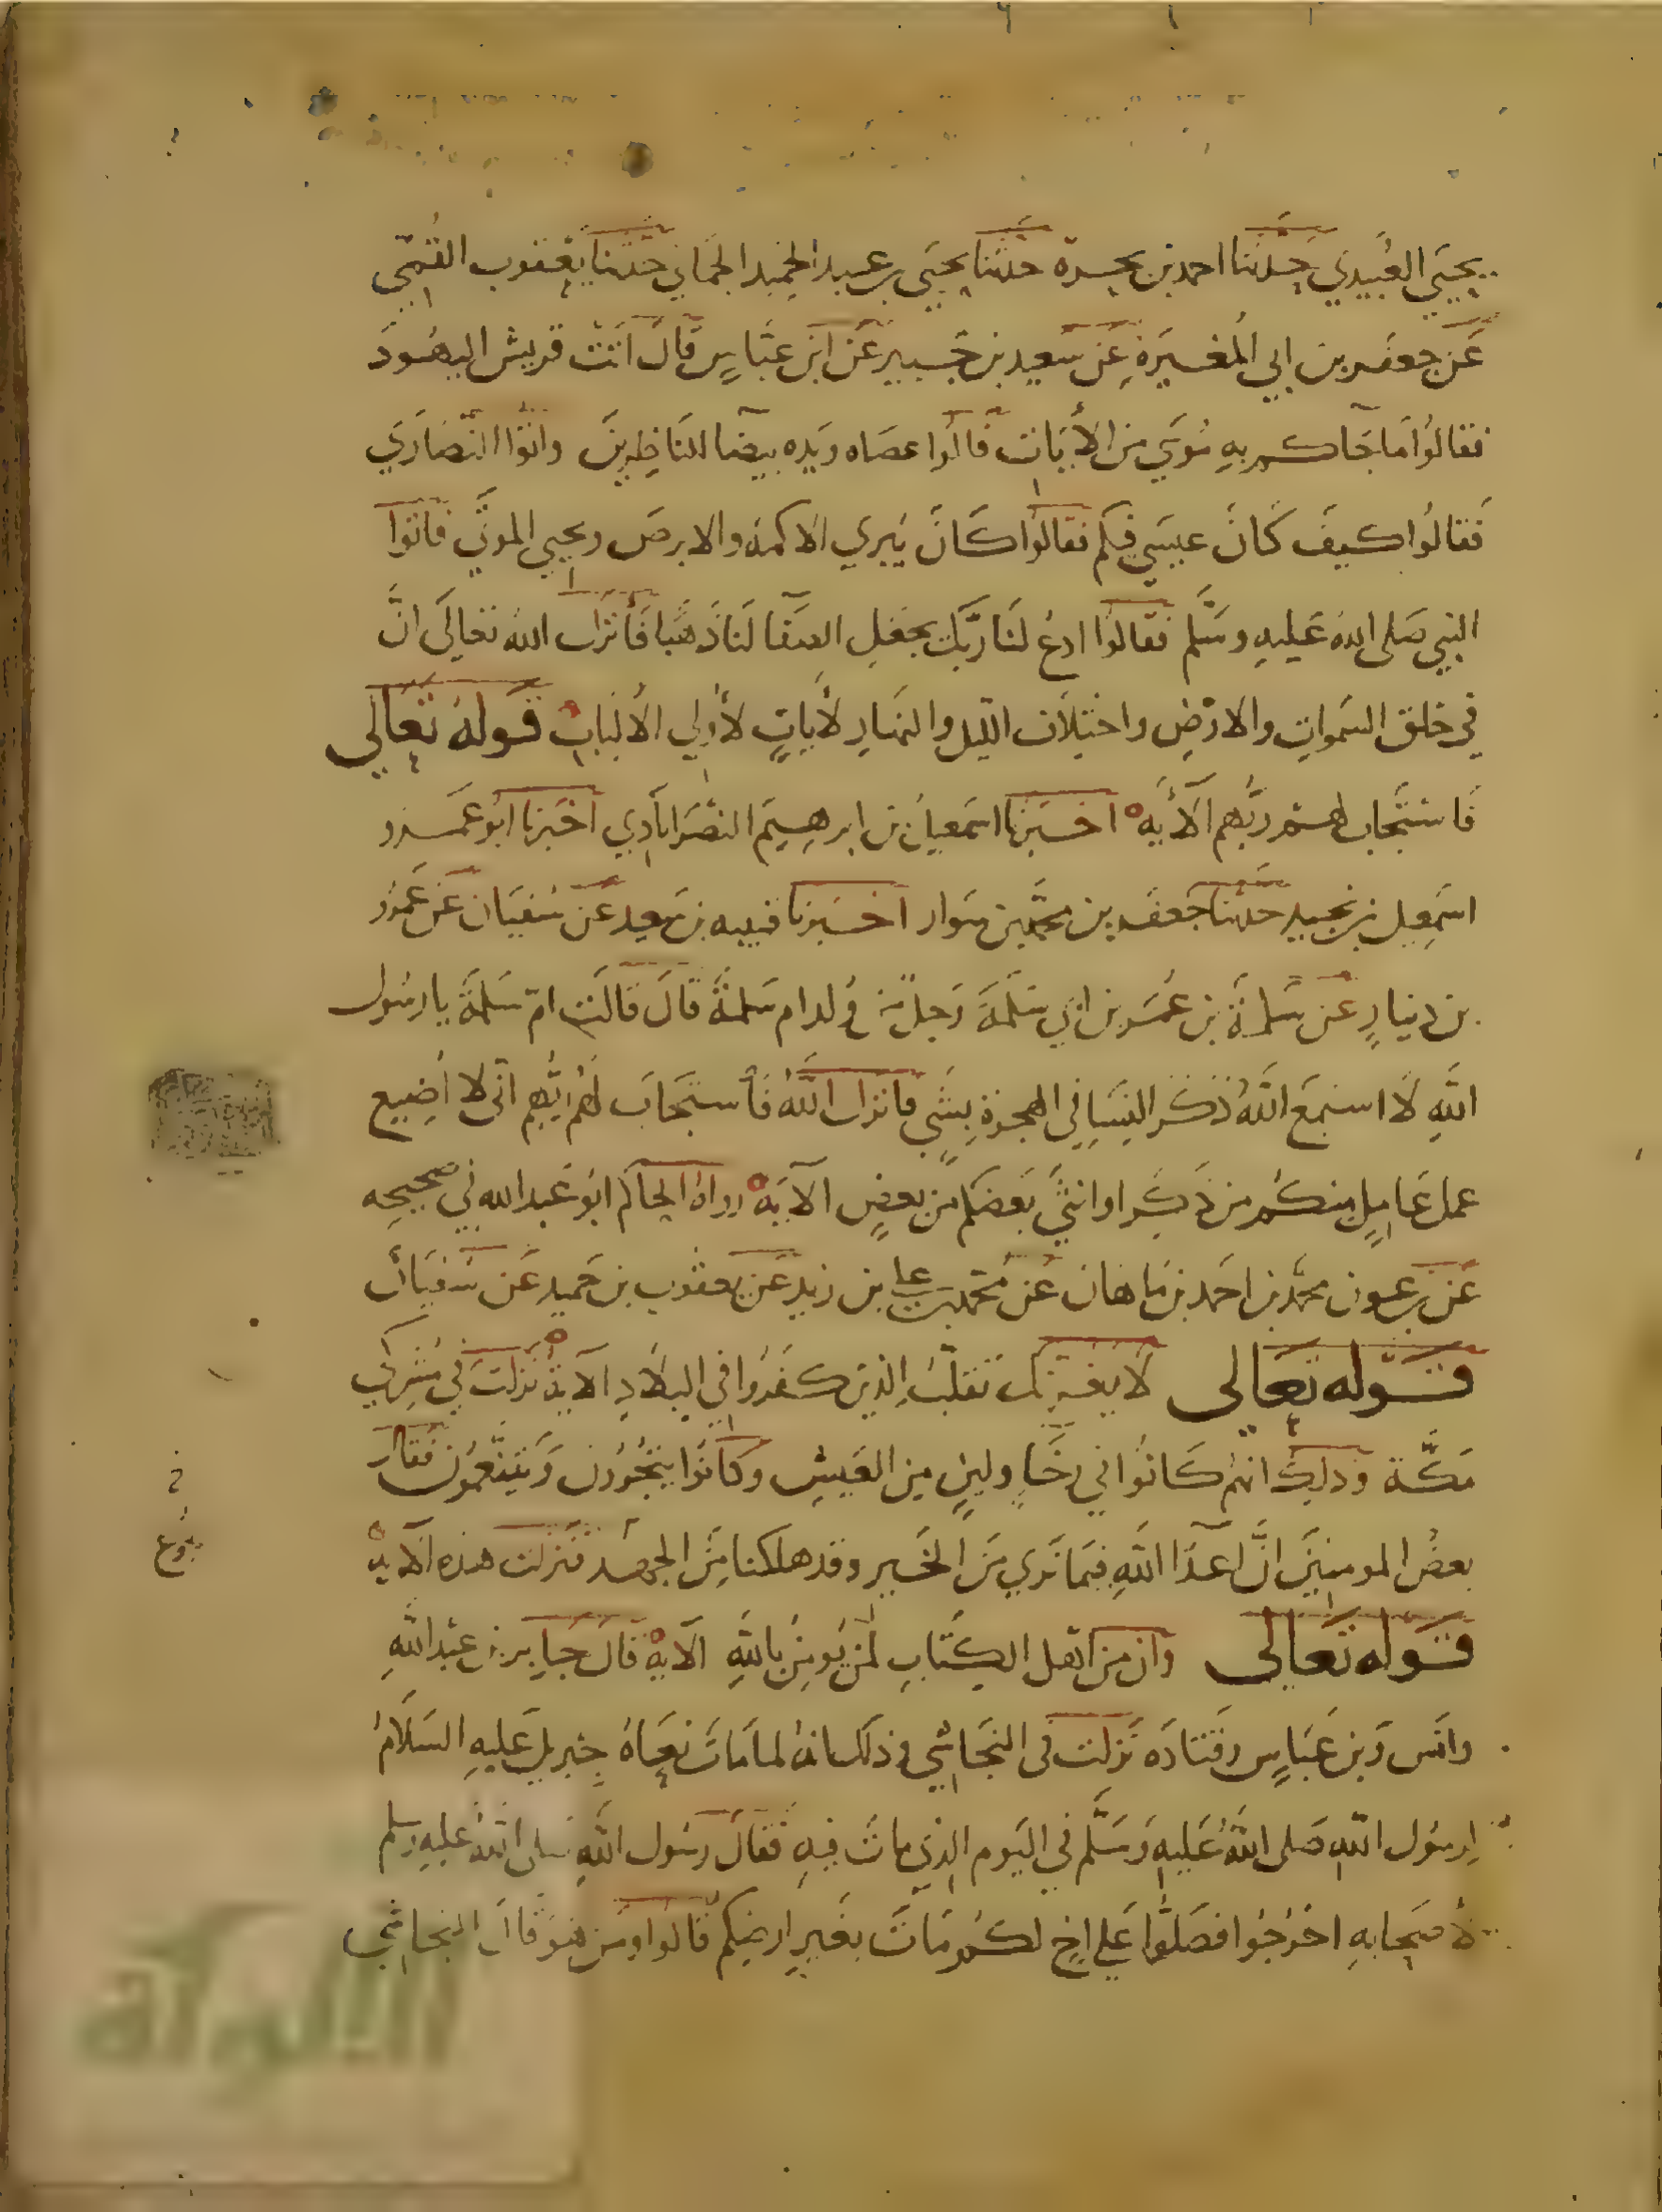 يحيى العُبيدي حدثنا احمد بن نجدة حدثنا يحيى بن عبد الحميد الحماني حدثنا يعقوب القُمّي
عَن جعفر بن ابي المُغيرَةِ عَن سَعيد بن جُبير عَن ابن عبَّاسٍ قالَ اتَت قريش اليهُودَ
فقالُوا مَا جَاكم بهِ مُوسَي من الأيَات قالُوا عصَاه ويَده بيضا للنَاظِرينَ واتوا النصَارَي
فَقالُوا كيفَ كانَ عيسَي فيكم فقالوُا كَانَ يُبري الاكمَه والابرصَ ويحيي الموتَي فاتوا
النبي صَلى الله عَليهِ وسَلَّم فقالوُا ادعُ لنَا ربَّك يجعَل الصَفَا لنَا ذَهبًا فَأنزَل اللهُ تعَالَى انَّ
في خلق السَمواتِ والارضِ واختِلاَف الليل والنهَارِ لأياتٍ لأُولي الألبَاب قَولهُ تعَالى
فَاستجَاب لهم ربُّهم الأيَه اخبَرنا اسمَعيل بن ابرهيمَ النصرَاباَدي اخبَرنا ابُو عَمرو
اسمَعِيل بن نجيد حدثنا جَعفر بن محمَّد بن سَوار اخبَرنا قتيبه بن سَعيد عَن سُفيَان عَن عَمرو
بن دينارٍ عَن سَلمةَ بن عُمَر بن ابي سَلمَة رَجل من ولد ام سَلمةَ قالَ قالَت امّ سَلمَةَ يا رسُول
اللهِ لاَ اسمَع اللهُ ذكَر النِسَا في الهجرةِ بشَيٍ فانزل اللهُ فَاستجَابَ لهُم ربُّهم انّى لا أضِيع
عمل عَامِلٍ منكم من ذكَرٍ او انثَي بَعضكم من بعضٍ الاَيَهْ رواهُ الحاكم ابُو عَبد الله في صَحيحِه
عَن بن عون محمَّد بن احمَد بن مَا هان عَن مُحمد بن على بن زيدٍ عَن يعقوب بن حميدٍ عَن سُفيَان
قَوله تعَالى لاَ يغرنك تقلُّبُ الذين كفَرُوا في البلاَدِ الاَية نزلتَ في مُشركي
مَكَّة وذلك انهم كَانوُا في رخَاٍ ولينٍ مِن العَيشِ وكاَنوُا يتجُرون وَيتنَعمون فقال
بعضُ المومنِينَ انَّ اعدَا اللهِ فيمَا نَري مِنَ الخَير وقد هلكنا مِنَ الجهد فنزلت هذه الايه
قَوله تعَالى وان من اَهل الكتَابِ لمَن يُومنُ باللهِ الاَيه قالَ جَابِر بن عبد اللهِ
وانَس وَبن عَبَاسٍ وقتادَه نزلت في النجَاشي وذلك انهُ لما مَاتَ نعَاهُ جبريل عَليهِ السَلاَمُ
لرسُول اللهِ صَلى اللهُ عَليهِ وَسَلَّم في اليَوم الذي ماتَ فيهِ فقالَ رسُول اللهِ صلى اللهُ عليهِ وسلم
لأصحَابهِ اخرُجُوا فصَلُّوا عَلى اخٍ لكُم مَاتَ بغَير ارضِكم قالوُا ومَن هوَ قالَ النجاشي
بلوغ
الألوكة